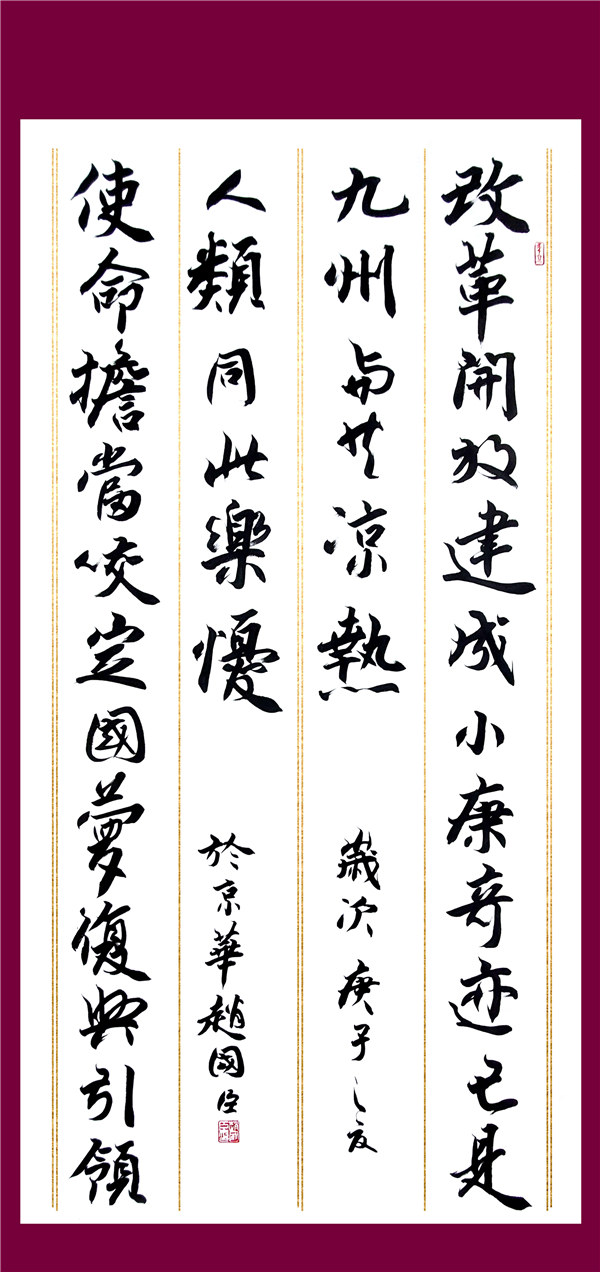 改革開放建成小康奇迹已是
九州与共凉熱
歲次庚子之夏
使命擔當咬定國夢復興引領
人類同此樂懮
於京華趙國臣